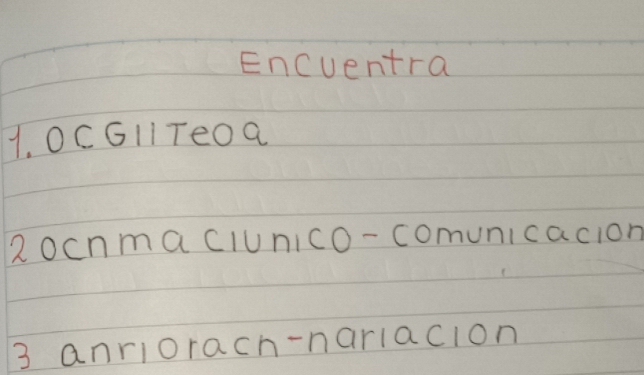 Encuentra
1. OCGIITeOa
2 ocnmaciunico - comunicacion
3 anriorach-nariacion